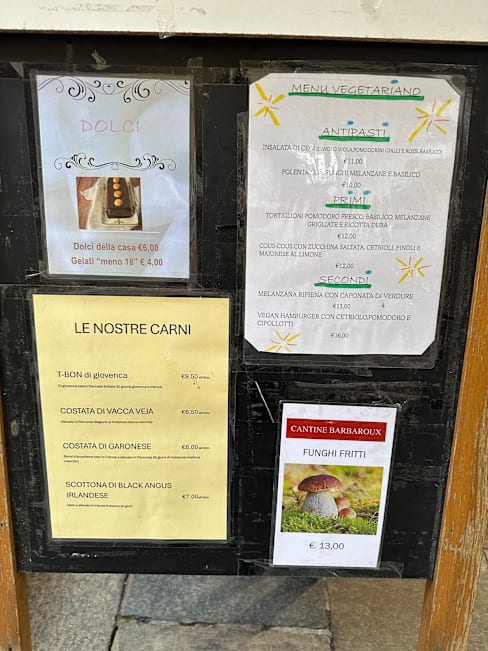 DOLCI
Dolci della casa €6,00
Gelati "meno 18" € 4,00
MENU VEGETARIANO
ANTIPASTI
INSALATA DI CECI (CAVOLO VIOLA, POMODORINI GIALLI E ROSSI, BASILICO)
€11,00
POLENTA, FUNGHI MELANZANE E BASILICO
€10,00
PRIMI
TORTIGLIONI POMODORO FRESCO, BASILICO, MELANZANE
GRIGLIATE E RICOTTA DURA
€12,00
COUS-COUS CON ZUCCHINA SALTATA, CETRIOLI, PINOLI E
MAIONESE AL LIMONE
€12,00
SECONDI
MELANZANA RIPIENA CON CAPONATA DI VERDURE
€13,00
VEGAN HAMBURGER CON CETRIOLO, POMODORO E
CIPOLLOTTI
€16,00
LE NOSTRE CARNI
T-BON di giovenca €9,50
COSTATA DI VACCA VEJA €6,50
COSTATA DI GARONESE €6,00
SCOTTONA DI BLACK ANGUS
IRLANDESE €7,00
CANTINE BARBAROUX
FUNGHI FRITTI
€. 13,00